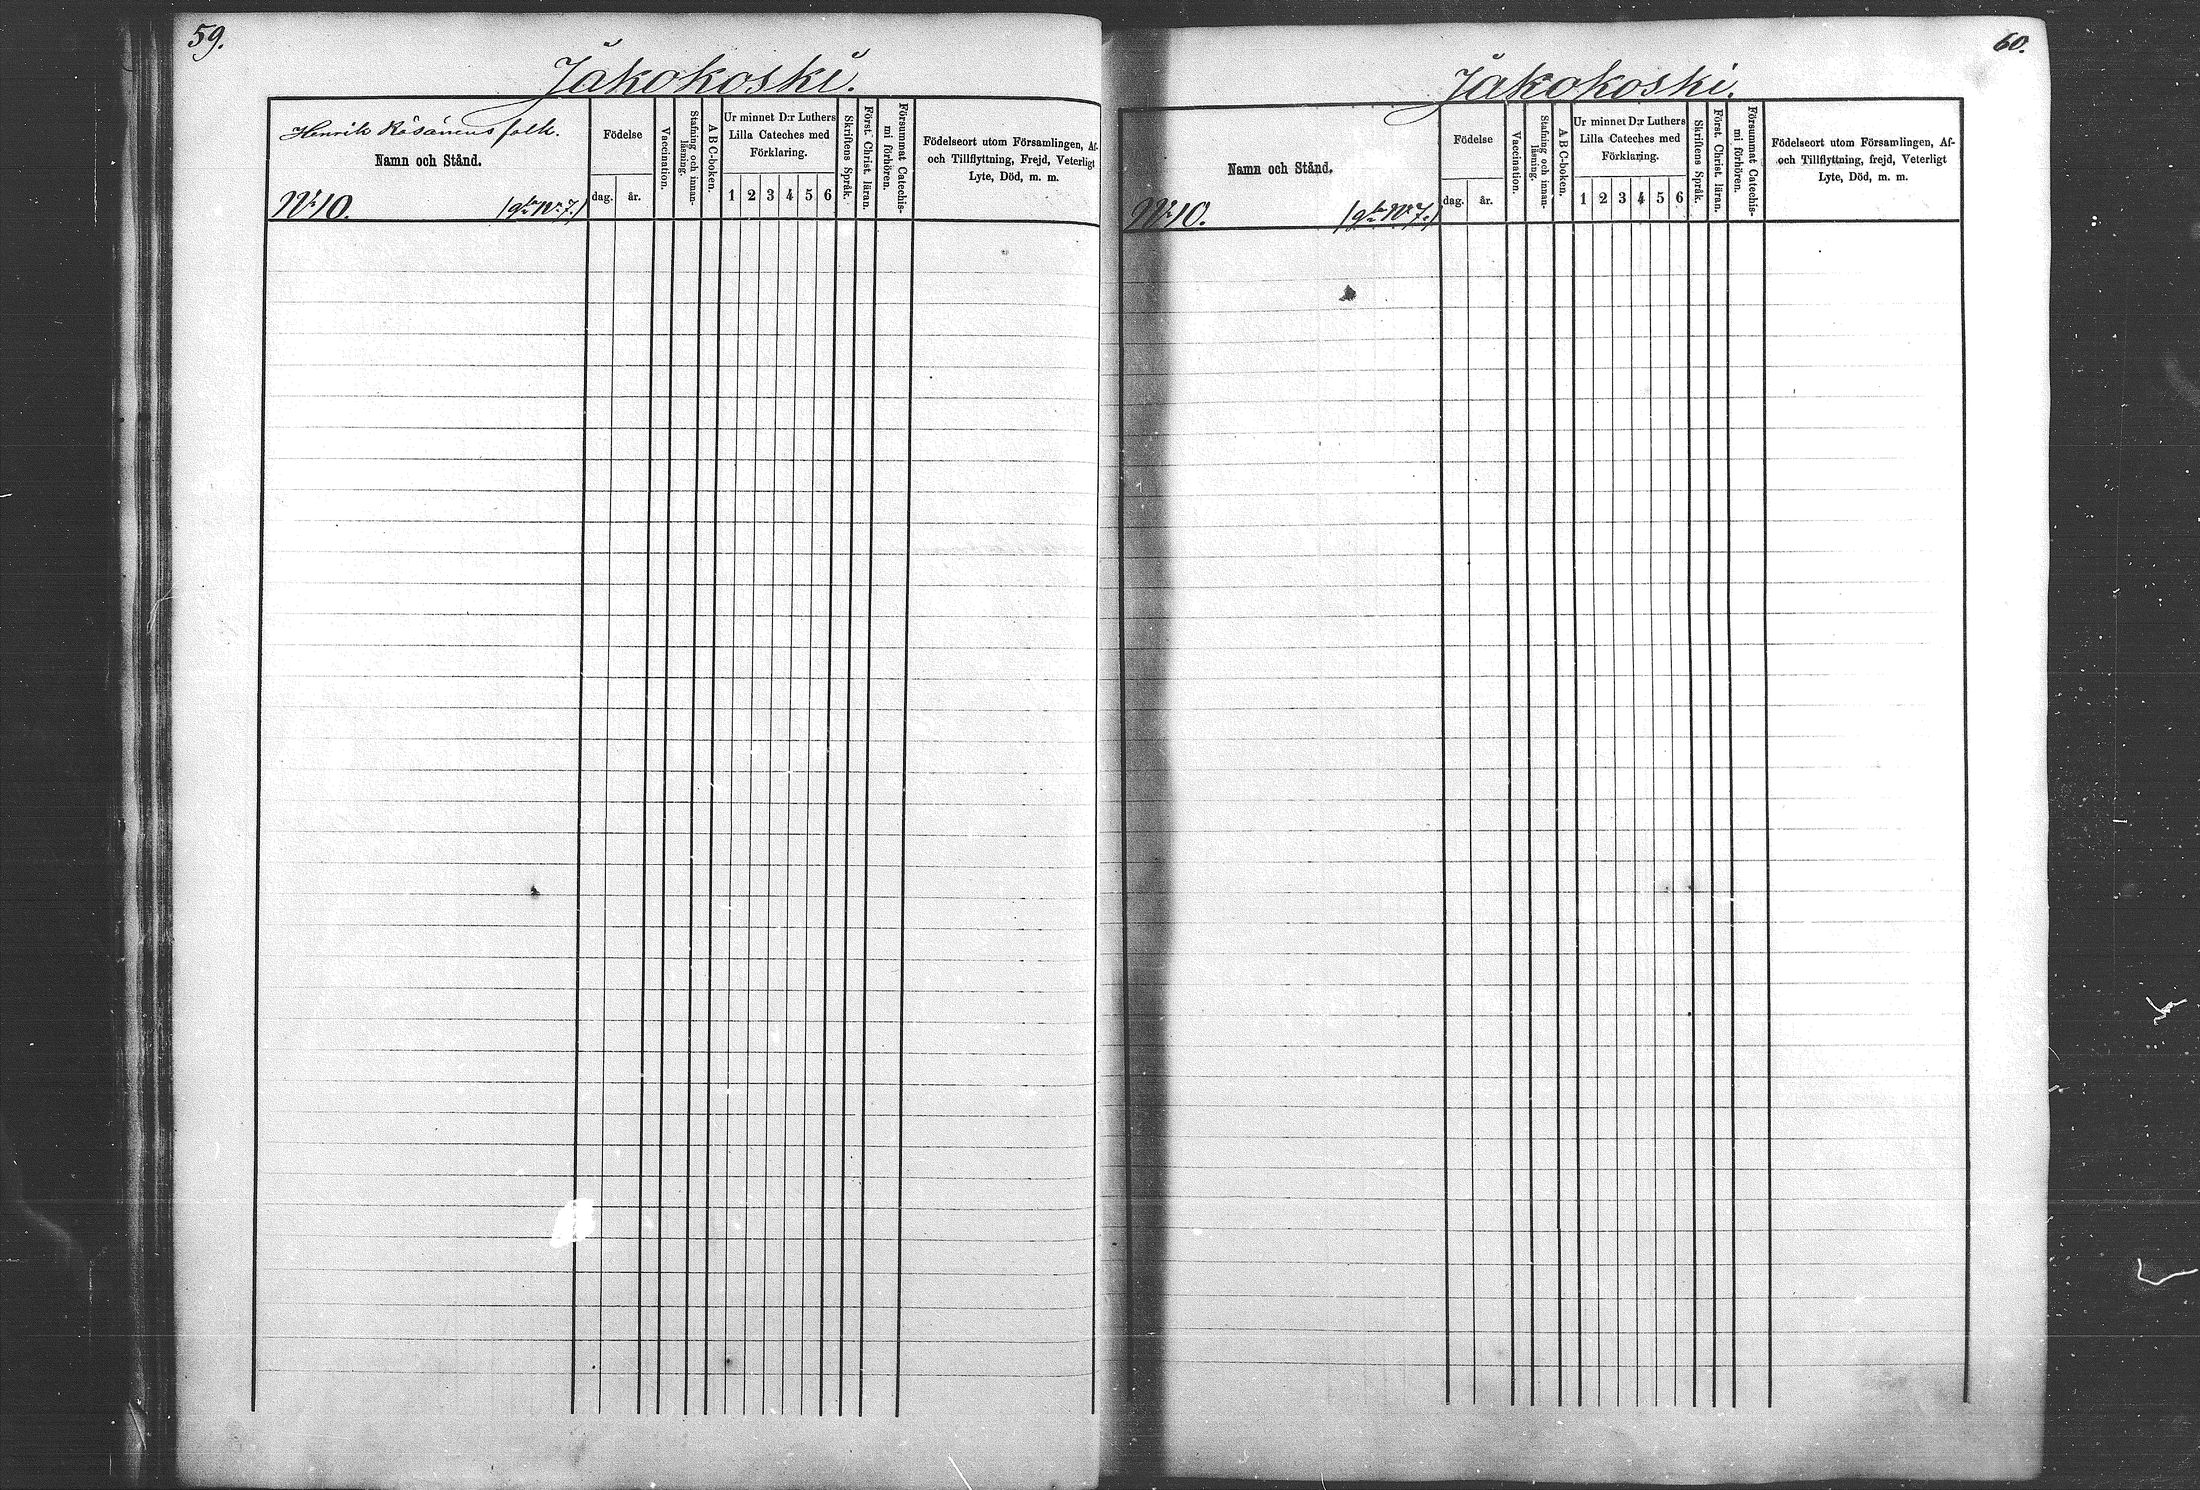 59.
Jakokoski.
Henrik Räsänens folk.
Namn och Stånd.
No 10. /gla No 7./
Födelse
dag. år.
Vaccination.
Stafning och innan-
läsning.
A B C-boken.
Ur minnet D:r Luthers
Lilla Cateches med
Förklaring.
1 2 3 4 5 6
Skriftens Språk.
Först. Christ. läran.
Försummat Catechis-
mi förhören.
Födelseort utom Församlingen, Af-
och Tillflyttning, Frejd, Veterligt
Lyte, Död, m. m.
60.
Jakokoski.
Namn och Stånd.
No 10. /gla No 7./
Födelse
dag. år.
Vaccination.
Stafning och innan-
läsning.
A B C-boken.
Ur minnet D:r Luthers
Lilla Cateches med
Förklaring.
1 2 3 4 5 6
Skriftens Språk.
Först. Christ. läran.
Försummat Catechis-
mi förhören.
Födelseort utom Församlingen, Af-
och Tillflyttning, frejd, Veterligt
Lyte, Död, m. m.